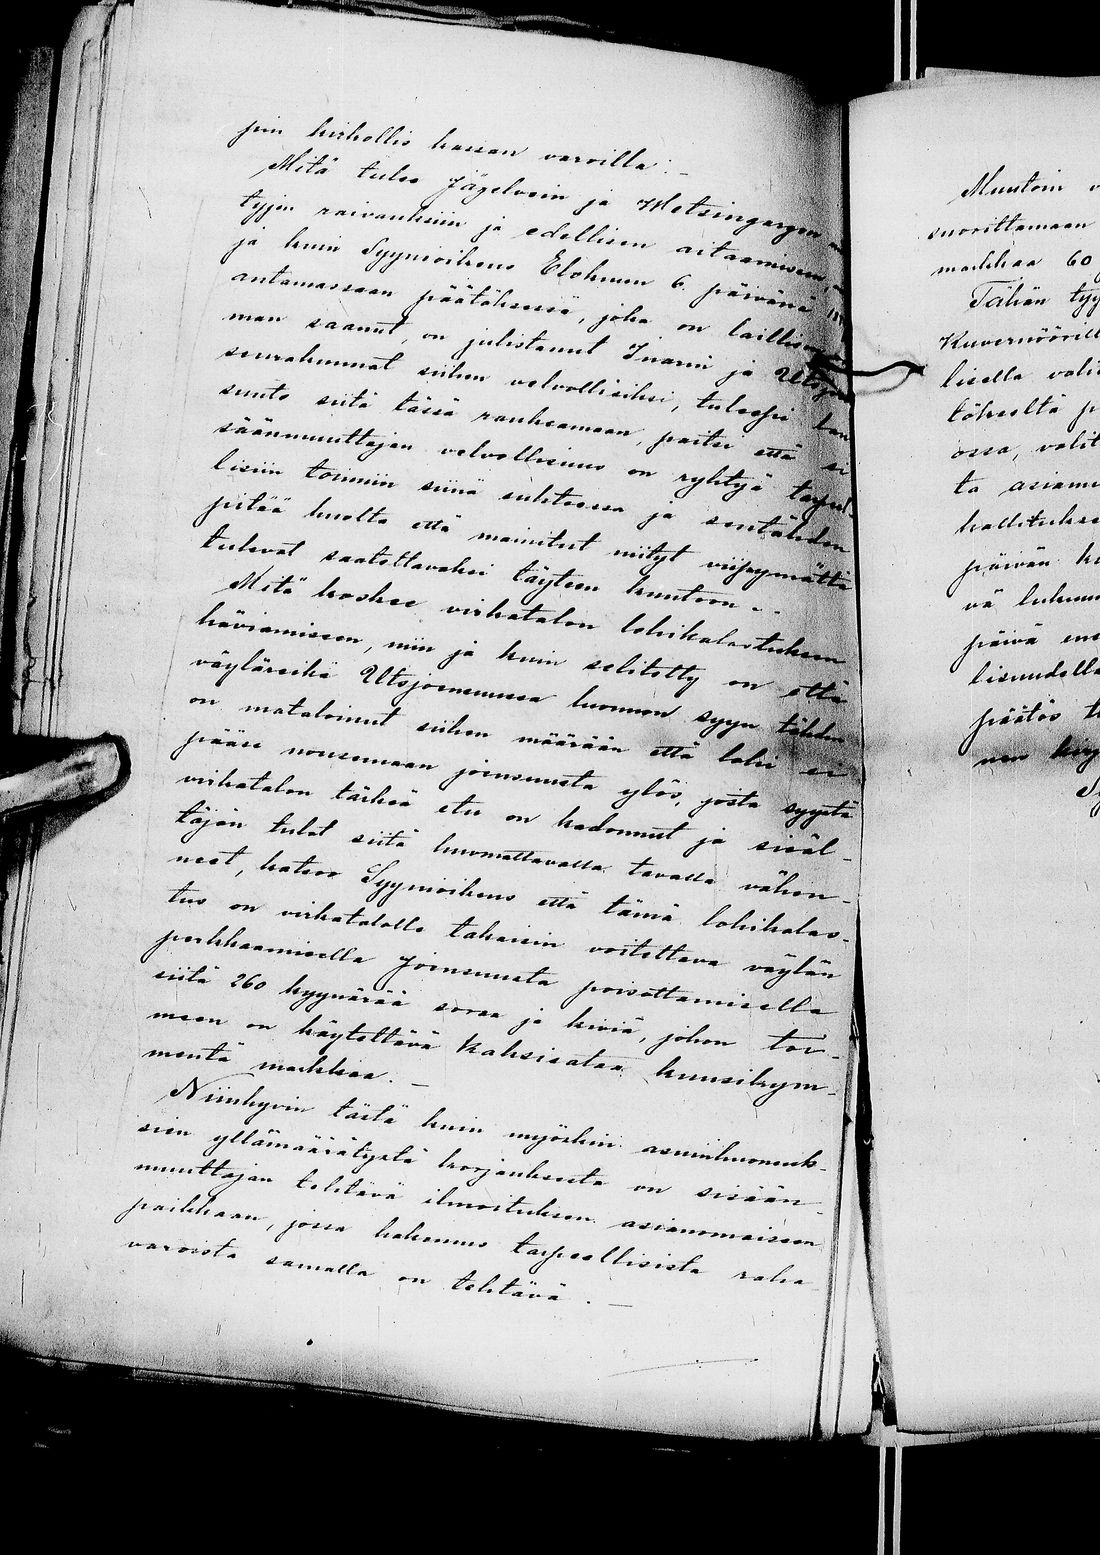 jun kirkollis kassan varoilla. –
Mitä tulee Jägelvein ja Metsingargen
tyjen raivauksiin ja edellisen aitaamiseen,
ja kuin Syynioikeus Elokuun 6. päivänä
antamassaan päätöksessä, joka on laillisen
man saanut, on julistanut Inarin ja Utsjoen
seurakunnat siihen velvollisiksi, tuleepi
suute siitä tässä raukeamaan, paitsi että si
säänmuuttajan velvollisuus on ryhtyä tarpeel-
lisiin toimiin siinä suhteessa ja sentähden
pitää huolta että mainitut niityt viipymättä
tulevat saatettavaksi täyteen kuntoon. –
Mitä koskee virkatalon lohikalastuksen
häviämiseen, niin ja kuin selitetty on että
väyläreikä Utsjoensuussa luonnon syyn tähden
on mataloinut siihen määrään että lohi ei
pääse nousemaan joensuusta ylös, josta syystä
virkatalon tärkeä etu on kadonnut ja sisäl-
täjän tulot siitä huomattavalla tavalla vähen-
neet, katsoo Syynioikeus että tämä lohikalas-
tus on virkatalolle takaisin voitettava väylän
perkkaamisella Joensuusta poisottamisella
siitä 260 kyynärää soraa ja kiviä, johon toi-
meen on käytettävä kaksisataa kuusikym-
mentä markkaa. –
Niinhyvin tästä kuin myöskin asuinhuoneuk-
sien yllämäärätystä korjauksesta on sisään-
muuttajan tehtävä ilmoituksen asianomaiseen
paikkaan, jossa hakemus tarpeellisista raha
varoista samalla on tehtävä. –
Muutoin
suorittamaan
markkaa 60
Tähän tyy
Kuvernöörill
lisella vali
töksellä p
ossa, valit
ta asian
hallituks
päivän k
vä luku
päivä en
lisuudella
päätös t
nen kirj
Sy